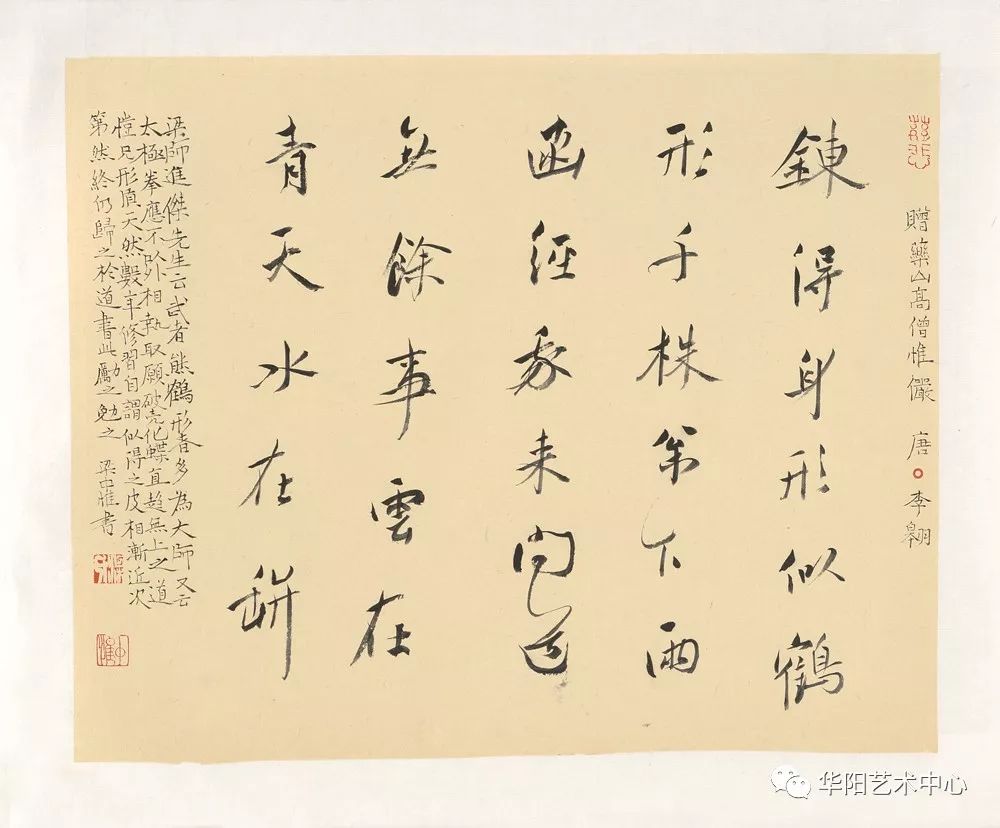 贈藥山高僧惟儼 唐 李翱
鍊得身形似鶴
形千株枩下兩
函經我来問道
無餘事雲在
青天水在缾
梁師進傑先生云武者熊鶴形者多為大師又云
太極拳應不 相執取願破壳化蝶直趋無上之道
愷兄形頂天然數年修習自謂似得之皮相漸近次
第然終仍歸之於道書此勵之勉之 梁中惟書
华阳艺术中心